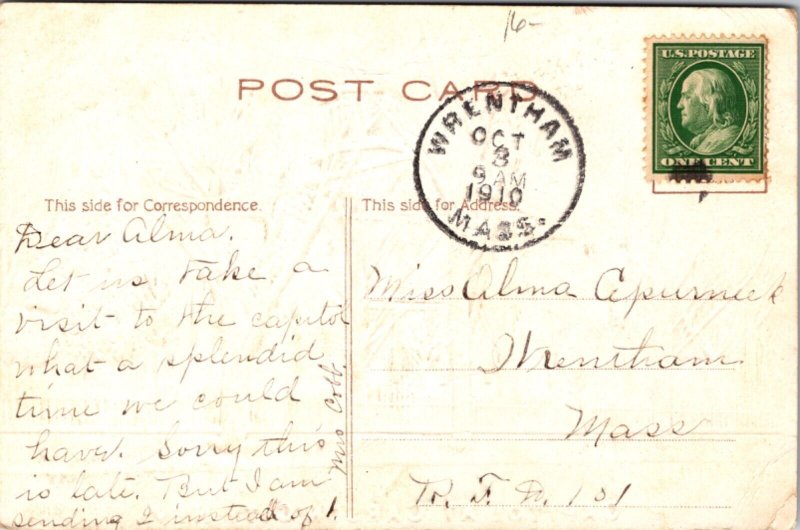 16-
U.S. POSTAGE
ONE CENT
POST CARD
WRENTHAM
OCT
3
9 AM
1910
MASS.
This side for Correspondence.
This side for Address.
Dear Alma.
Let us take a
visit to the capitol
what a splendid
time we could
have. Sorry this
is late. But I am
sending 2 instead of 1.
Miss Cobb.
Miss Alma
Wrentham
Mass
R. F. D. 101